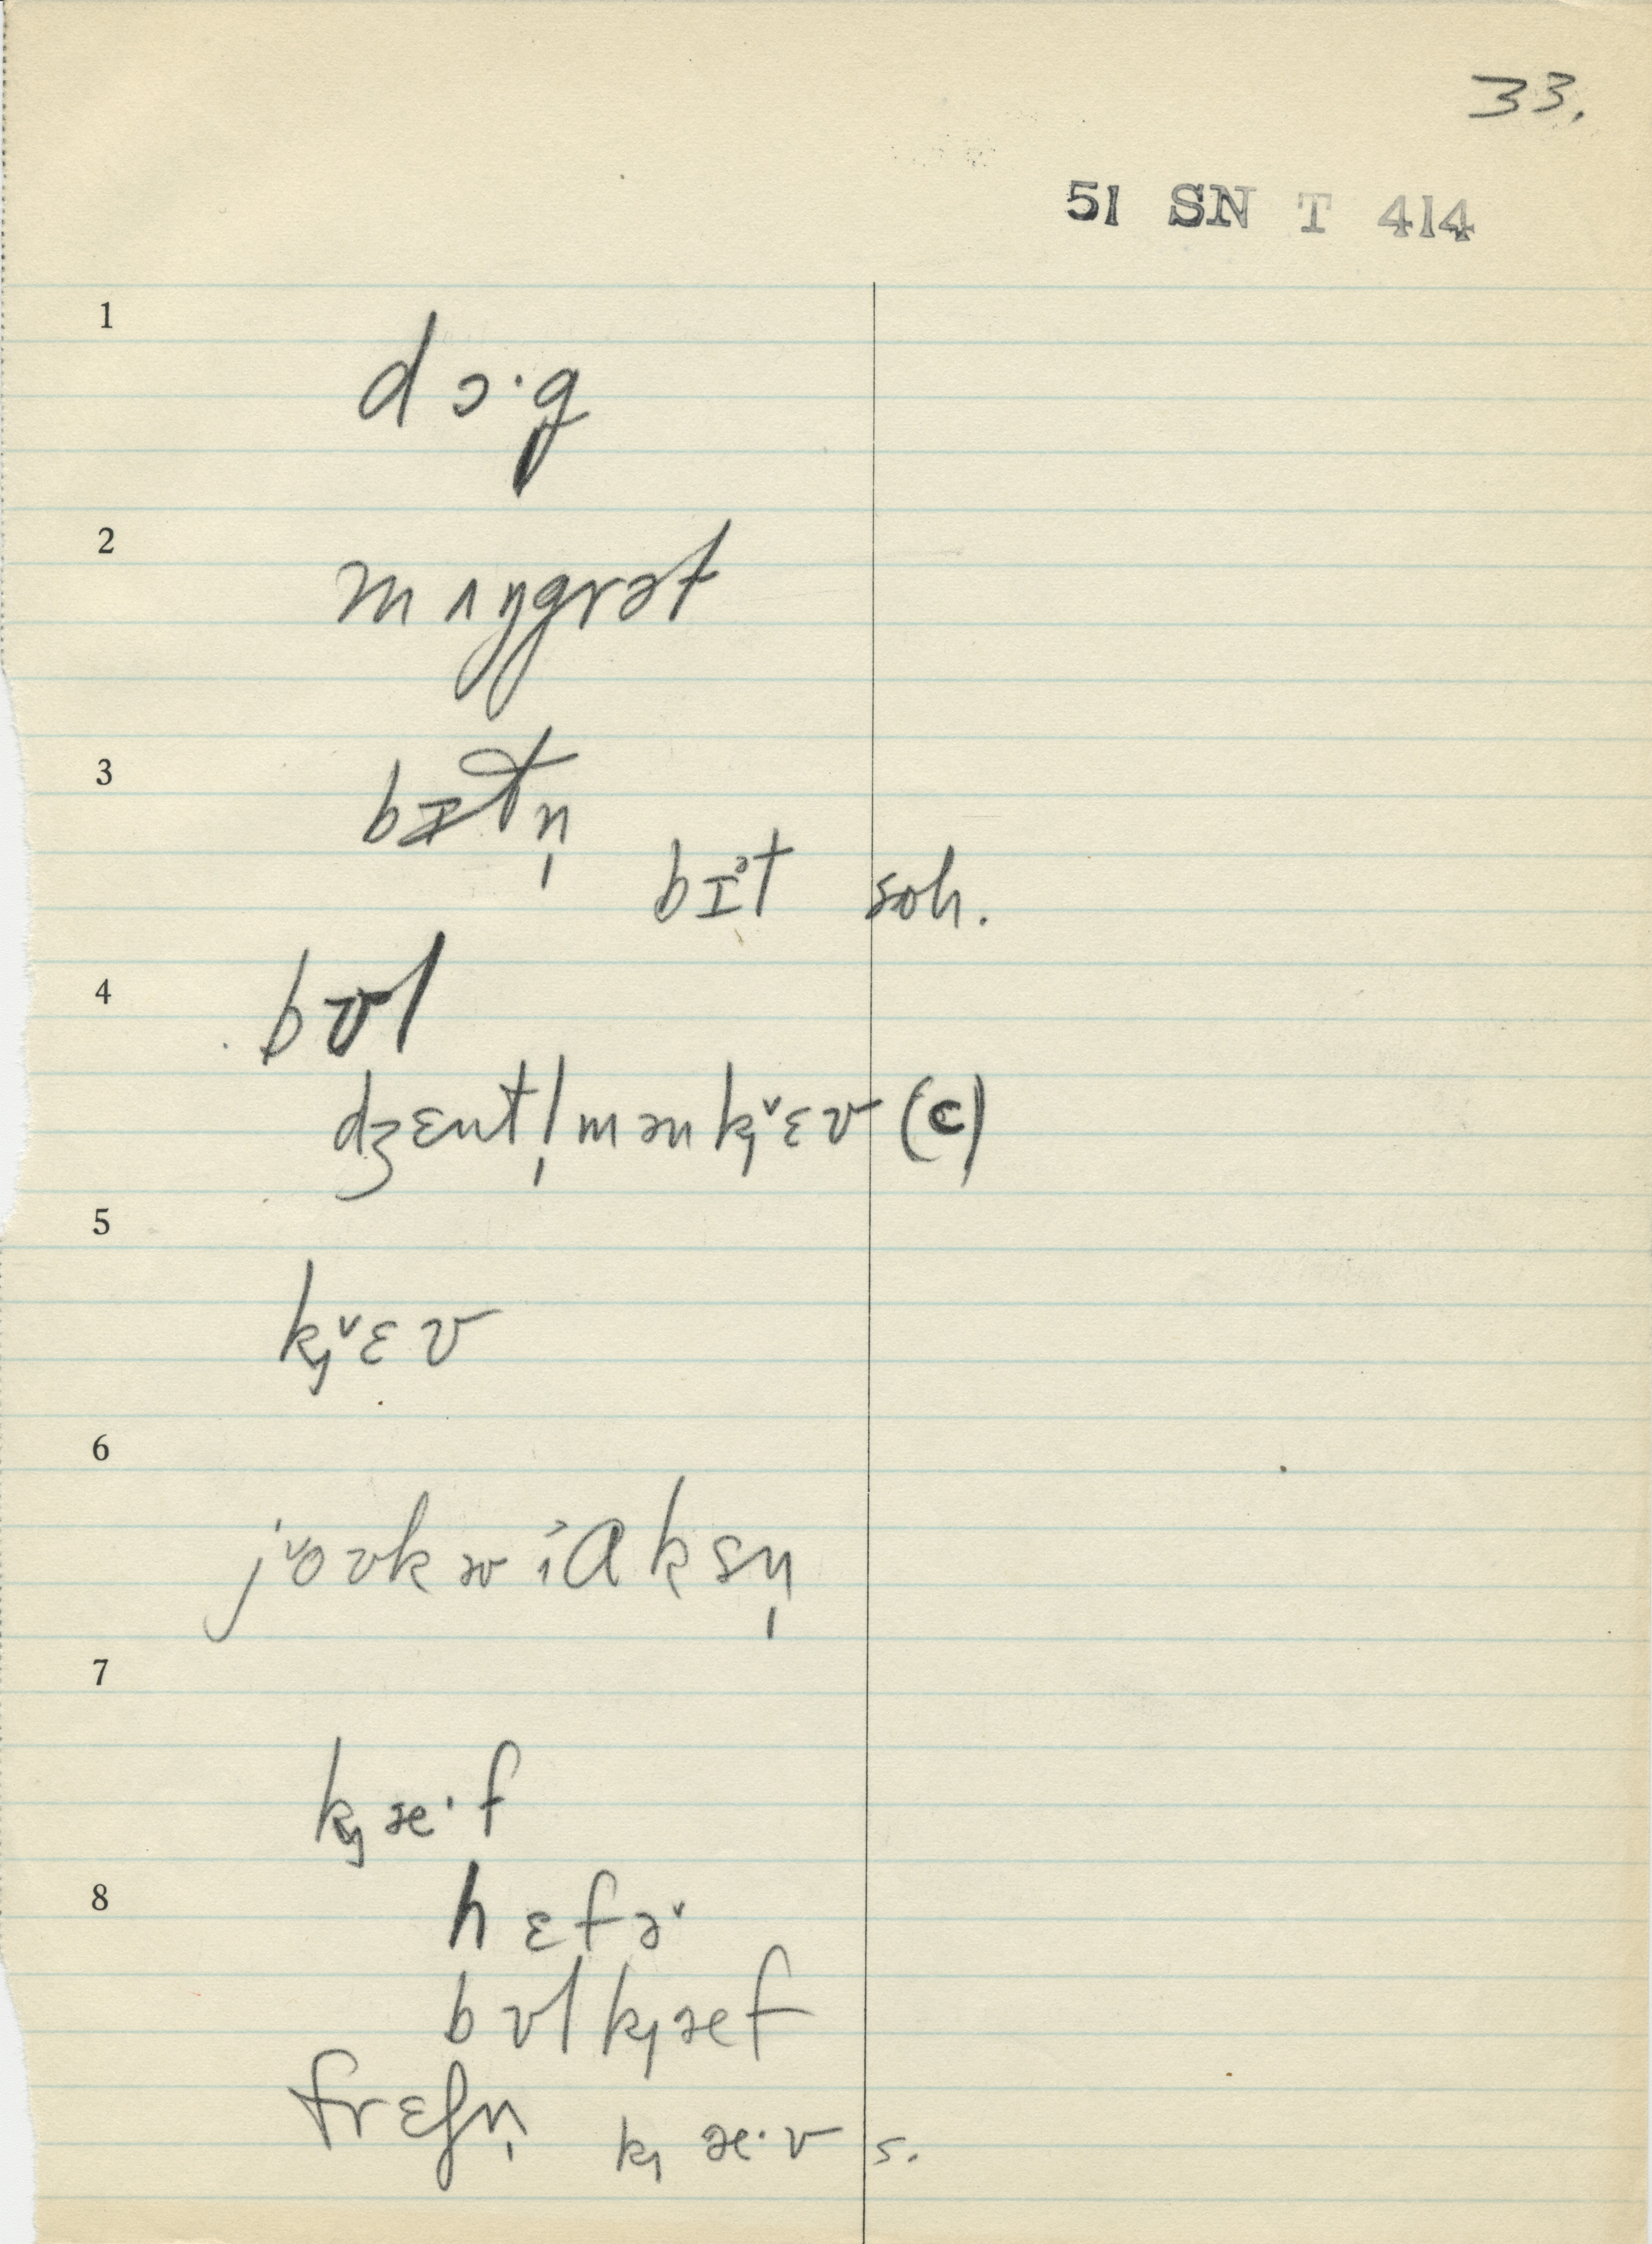 33.
51 SN T 414
1
dɔ·g
2
mʌŋgrət
3
bɪtn̩
bɪᵊt soh.
4
bʊl
dʒɛntl̩mənk̡ˇɛʊ (c)
5
k̡ˇɛʊ
6
jˇoʊkwiɑksn̩
7
k̡æ·f
8
hɛfəˇ
bʊlk̡æf
frɛʃn̩ k̡æ·v s.